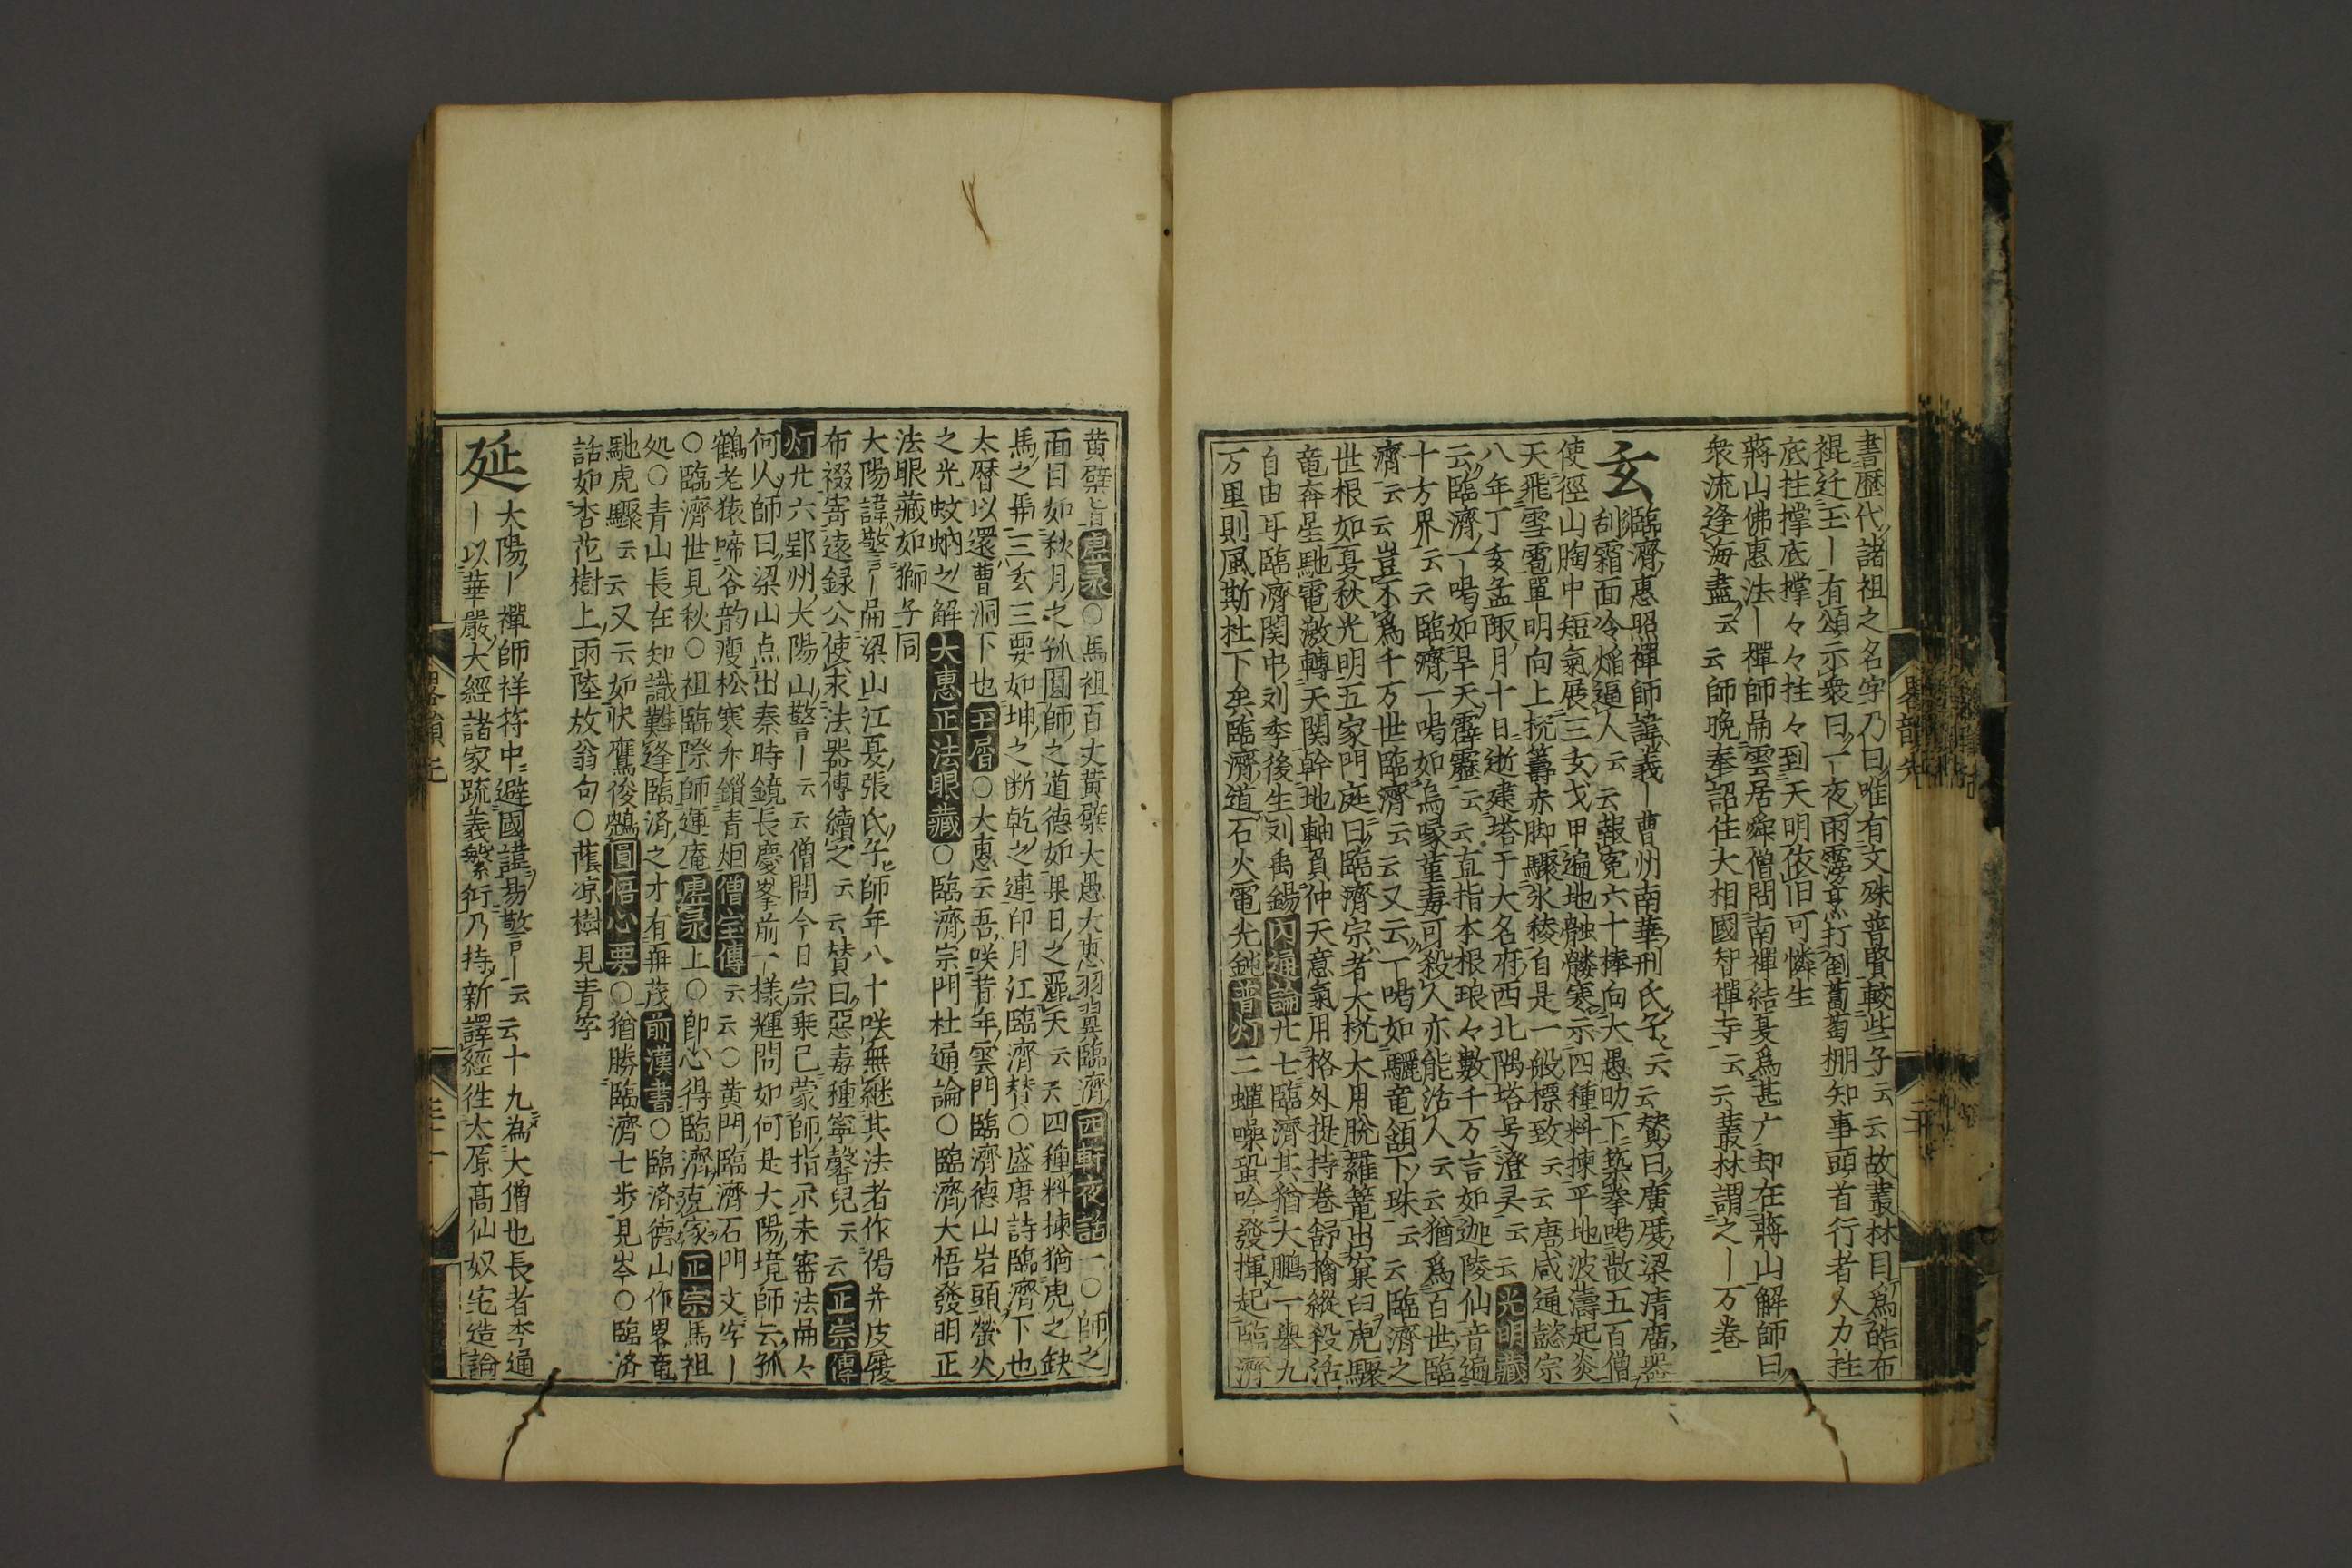 書歴代諸祖之名字乃曰唯有文殊普賢較些子云云故叢林目爲皓布
裩迁玉｜有頌示衆曰一夜雨霶烹打倒蒲萄棚知事頭首行者人力拄
底拄撑底撑々々拄々到天明依旧可憐生
蒋山佛惠法｜禪師嗣雲居舜僧問南禪結夏爲甚广却在蒋山解師曰
衆流逢海盡云云師晩奉詔住大相國智禪寺云云叢林謂之｜万巻
玄
臨濟惠照禪師諱義｜曹州南華刑氏子云云賛曰廣度梁清庿器
刮霜面冷焔逼人云云報寃六十捧向大愚叻下築拳喝散五百僧
使徑山胸中短氣展三玄戈甲遍地骷髏寒示四種料揀平地波濤起炎
天飛雪雹單明向上抏籌赤脚驟氷稜自是一般標致云云唐咸通懿宗
八年丁亥孟陬月十日逝建塔于大名府西北隅塔号澄灵云云光明藏
云臨濟一喝如旱天霹靂云云直指本根琅々數千万言如迦陵仙音遍
十方界云云臨濟一喝如烏喙菫毒可殺人亦能活人云云猶爲百世臨
濟云云豈不爲千万世臨濟云云又云一喝如驪竜頷下珠云云臨濟之
世根如夏秋光明五家門庭曰臨濟宗者大抏大用脫羅篭出窠臼虎驟
竜奔星馳電激轉天関幹地軸負冲天意氣用格外提持巻舒擒縱殺活
自由耳臨濟関中刘季後生刘禹錫內通論卄七臨濟其猶大鵬一舉九
万里則風斯杜下矣臨濟道石火電光鈍普灯二蟬噪蛩吟發揮起臨濟
黄檗旨虛录○馬祖百丈黄檗大愚大恵羽翼臨濟西軒夜話一○師之
面目如秋月之孤圓師之道德如杲日之麗天云云四種料揀猶虎之缺
馬之䭾三玄三要如坤之断乾之連印月江臨濟賛○盛唐詩臨濟下也
太暦以還曹洞下也玉屑○大惠云吾咲昔年雲門臨濟德山岩頭螢火
之光蚊蚋之解大惠正法眼藏○臨濟宗門杜通論○臨濟大悟發明正
法眼藏如獅子同
大陽諱警｜嗣梁山江夏張氏子師年八十咲無継其法者作偈并皮履
布裰寄遠録公使求法器傳續之云云賛曰惡毒種寧馨兒云云正宗傳
灯卄六郢州大陽山警｜云云僧問今日宗乗已蒙師指示未審法嗣々
何人師曰梁山点出秦時鏡長慶峯前一様輝問如何是大陽境師云孤
鶴老猿啼谷韵瘦松寒竹鎖青烟僧宝傳云云○黄門臨濟石門文字｜
○臨濟世見秋○祖臨際師運庵虛录上○卽心得臨濟克家正宗馬祖
処○青山長在知識難逢臨済之才有無茂前漢書○臨済德山作略竜
馳虎驟云云又云如快鷹俊鷂圓悟心要○猶勝臨濟七步見岑○臨済
話如杏花樹上雨陸放翁句○蔭凉樹見青字
延
大陽｜禪師祥符中避國諱易警｜云云十九為大僧也長者李通
｜以華嚴大經諸家疏義繁衍乃持新譯經徃太原高仙奴宅造論